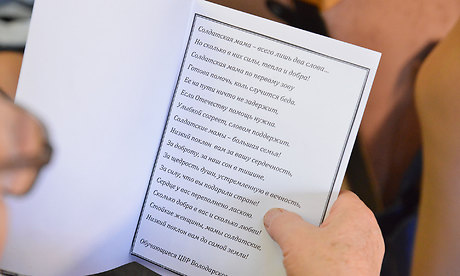 Солдатская мама – всего лишь два слова...
Но сколько в них силы, тепла и добра!
Солдатская мама по первому зову
Готова помочь, коль случится беда.
Ее на пути ничто не задержит,
Если Отечеству помощь нужна.
Улыбкой согреет, словом поддержит.
Солдатские мамы – большая семья!
Низкий поклон вам за вашу сердечность,
За доброту, за наш сон в тишине,
За щедрость души, устремленную в вечность,
За силу, что вы подарили стране!
Сердце у вас переполнено ласкою
Сколько добра в вас и сколько любви!
Стойкие женщины, мамы солдатские,
Низкий поклон вам до самой земли!
Обучающиеся ЦВР Володарско